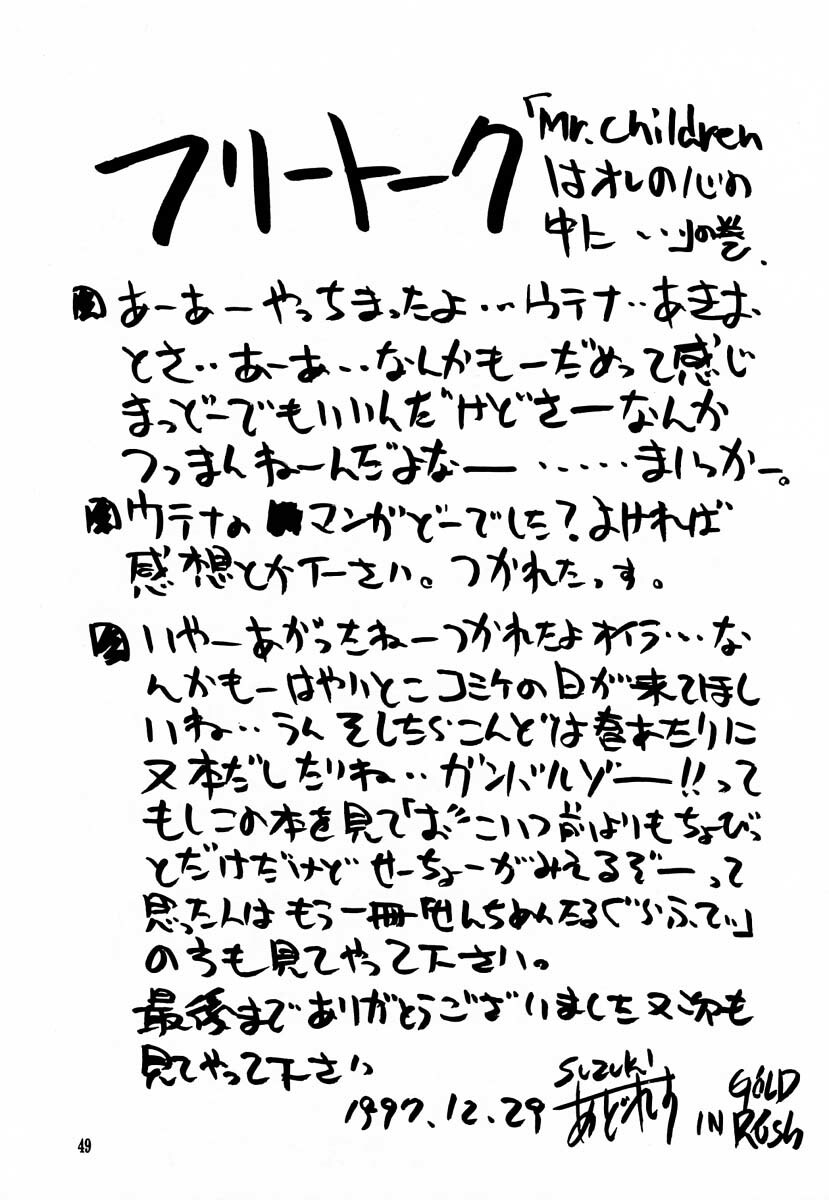 フリートーク
「Mr.Children
はオレの心の
中に・・・」の巻.
あーあーやっちまったよ・・・ウテナ・・あきお
とさ・・あーあ・・なんかもーだめって感じ
まっどーでもいいんだけどさーなんか
つっまんねーんだよなー・・・・・まいっかー。
ウテナのマンガどーでした？よければ
感想とか下ーさい。つかれたっす。
いやーあがったねーつかれたよオイラ・・・な
んかもーはやいとこコミケの日が来てほし
いね・・うん そしたらこんどは春あたりに
又本だしたりね・・ガンバルゾー!!って
もしこの本を見て「お"こいつ前よりもちょびっ
とだけだけどせーちょーがみえるぞーって
思った人はもう一冊「せんちめんたるぐらふてぃ」
のうも見てやって下さい。
最後までありがとうございました又次も
見てやって下さい
1997.12.29
Suzuki
あどれす
GOLD
IN RUSh
49